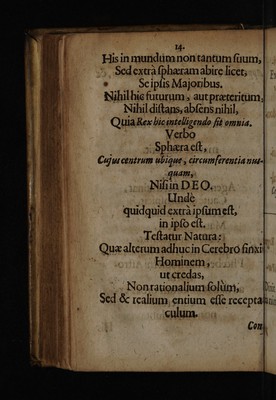 14.
His in mundum non tantum suum,
Sed extrà sphæram abire licet,
Se ipsis Majoribus.
Nihil hic futurum, aut præteritum,
Nihil distans, absens nihil,
Quia Rex hic intelligendo fit omnia.
Verbo
Sphæra est,
Cujus centrum ubique, circumferentia nus-
quam,
Nisi in DEO.
Undè
quidquid extrà ipsum est,
in ipso est.
Testatur Natura:
Quæ alterum adhuc in Cerebrô finxit
Hominem,
ut credas,
Non rationalium solùm,
Sed & realium entium esse recepta-
culum.
Con